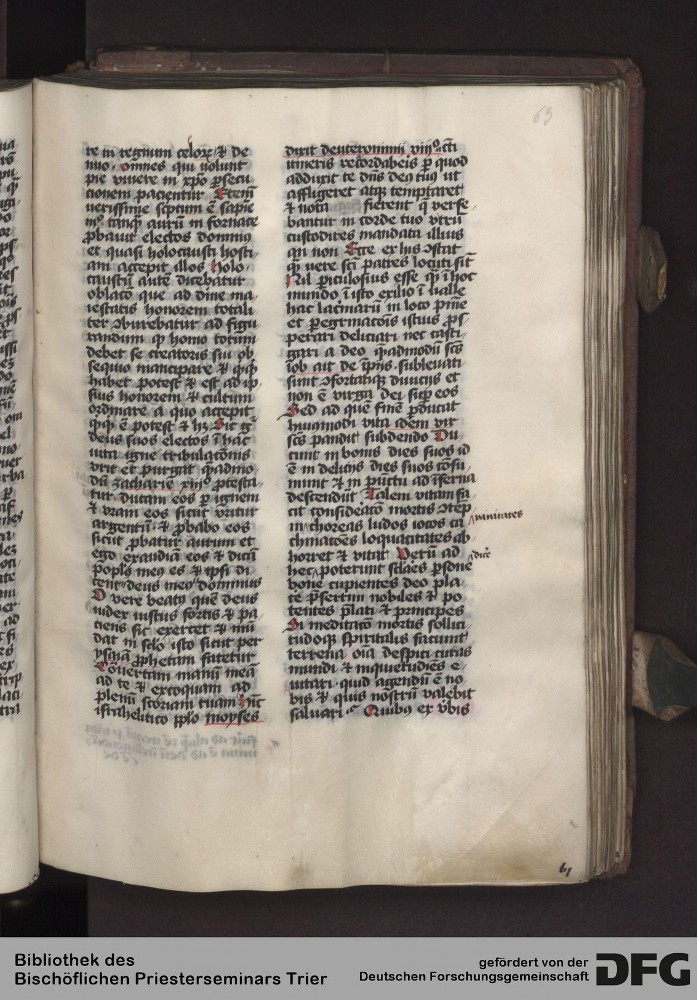 63
re in regnum celoꝝ ⁊ de
nuo omnes qui volunt
pie vivere in xp̄o ꝑsecu
cionem pacientur Etem̄
verissime sc̄ptum ē sapīe
iiiº tanqȝ aurū in fornace
ꝓbauit electos dominus
et quasi holocausti hosti
am accepit illos Holo
caustū autē dicebatur
oblacō que ad diīe ma
iestatis honorem totali
ter ↄburebatur ad figu
randum qꝫ homo totum
debet se creatoris sui ob
sequio mancipare ⁊ qͥcqͥd
habet potest ⁊ est ad ip
sius honorem ⁊ cultum
ordinare a quo accepit
qͥcqͥd ē potest ⁊ hꝫ Sic gͦ
deus suos electos ī hac
vita igne tribulacōnis
vrit et purgat qͣdmo
dū zacharie xiiiº ꝓtesta
tur ducam eos ꝑ ignem
⁊ vram eos sicut vritur
argentū ⁊ ꝓbabo eos
sicut ꝓbatur aurum et
ego exaudiā eos ⁊ dicā
poplꝰ meꝰ es ⁊ ipsi di
cent deus meꝰ dominus
O vere beatꝰ quē deus
iudex iustus fortis ⁊ pa
ciens sic exercet ⁊ mū
dat in sclo isto sicut per
ysaiā ꝓphetam fatetur
Cōuertam manū meā
ad te ⁊ excoquam ad
plenū scoriam tuam Hīc
israhelitico pplo moyses
dixit deuteronomii viijº cūti
itineris recordabeis ꝑ quod
adduxit te dn̄s deꝰ tuꝰ ut
affligeret atqȝ temptaret
⁊ nota fierent q̄ verse
bantur in corde tuo vtrū
custodires mandata illius
an non Ecce ex his ↄstat
qͣ vere sc̄i patres locuti sūt
Nil ꝑiculosius esse qͣ ī hoc
mundo ī isto exilio ī valle
hac lacrimarū in loco pn̄īe
et ꝑegrinacōnis istius ꝓs
perari deliciari nec casti
gari a deo qͣdmodū sc̄s
iob ait de īpijs subleuati
sunt ↄfortatiqȝ diuicijs et
non ē virga dei suꝑ eos
Sed ad quē finē ꝓducat
huiꝰmodi vita idem vir
sc̄s pandit subdendo Du
cunt in bonis dies suos id
ē in delicijs dies suos cōsu
munt ⁊ in pūctu ad īferna
descendūt Talem vitam fa
cit consideracō mortis ↄtēp
ni choreas ludos iocos ca
chinacōes loquacitates ab
horret ⁊ vitat Verū ad
hec poterunt sclāes ꝑsone
bone cupientes deo pla
re p̄sertim nobiles ⁊ po
tentes p̄lati ⁊ principes
Si meditacō mortis sollici
tudoqȝ spiritualis faciunt
terrena oīa despici curas
mundi ⁊ inquietudīes e
uitari quid agendū ē no
bis ⁊ quis nostrū valebit
saluari Quibꝰ ex vbis
vanitates
dicere
61
Bibliothek des
Bischöflichen Priesterseminars Trier
gefördert von der
Deutschen Forschungsgemeinschaft
DFG